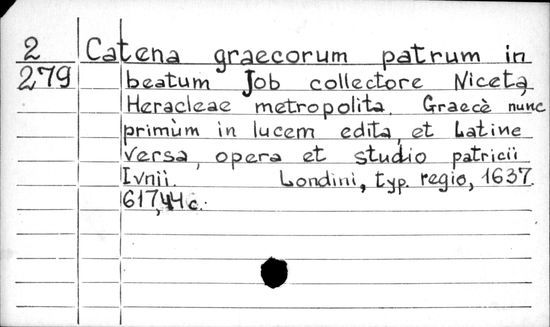 2 Catena graecorum patrum in
279 beatum Job collectore Niceta,
Heracleae metropolita. Graecè nunc
primùm in lucem edita, et Latine
versa, opera et studio patricii
Ivnii. Londini, typ. regio, 1637.
617,44 c.